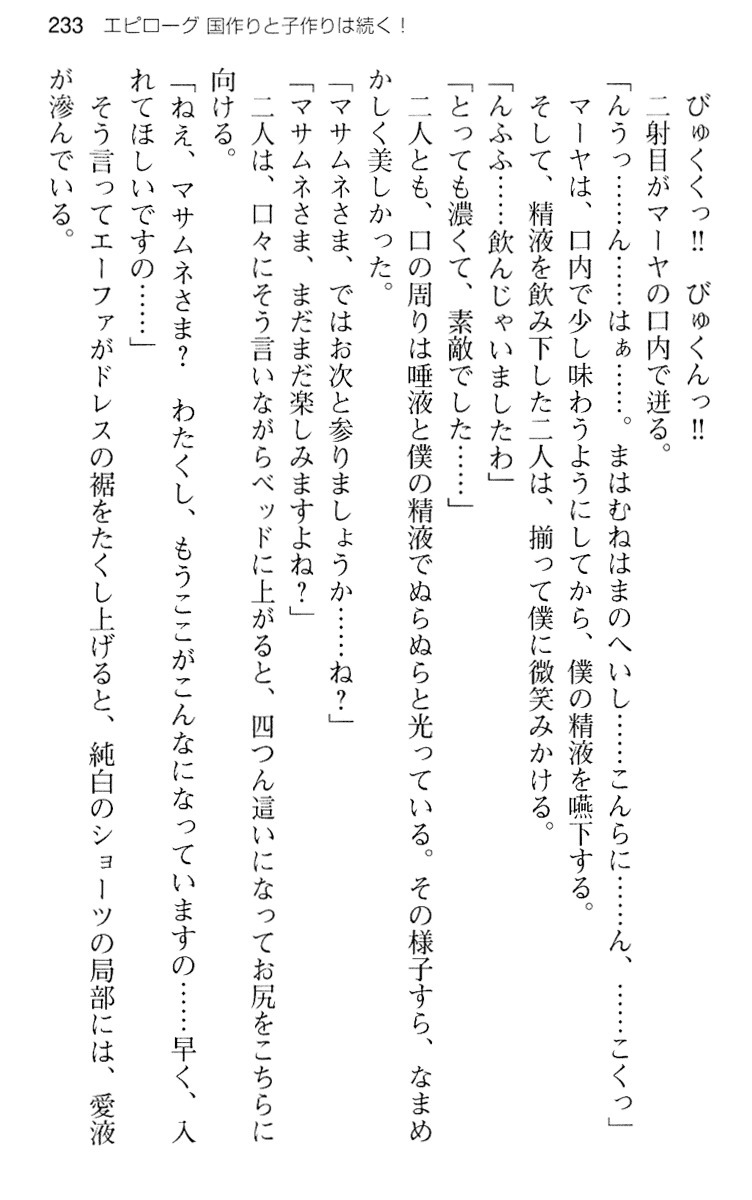 233 エピローグ 国作りと子作りは続く！
びゅくくっ!! びゅくんっ!!
二射目がマーヤの口内で迸る。
「んうっ……ん……はぁ……。まはむねはまのへいし……こんらに……ん、……こくっ」
マーヤは、口内で少し味わうようにしてから、僕の精液を嚥下する。
そして、精液を飲み下した二人は、揃って僕に微笑みかける。
「んふふ……飲んじゃいましたわ」
「とっても濃くて、素敵でした……」
二人とも、口の周りは唾液と僕の精液でぬらぬらと光っている。その様子すら、なまめ
かしく美しかった。
「マサムネさま、ではお次と参りましょうか……ね？」
「マサムネさま、まだまだ楽しみますよね？」
二人は、口々にそう言いながらベッドに上がると、四つん這いになってお尻をこちらに
向ける。
「ねえ、マサムネさま？ わたくし、もうここがこんなになっていますの……早く、入
れてほしいですの……」
そう言ってエーファがドレスの裾をたくし上げると、純白のショーツの局部には、愛液
が滲んでいる。